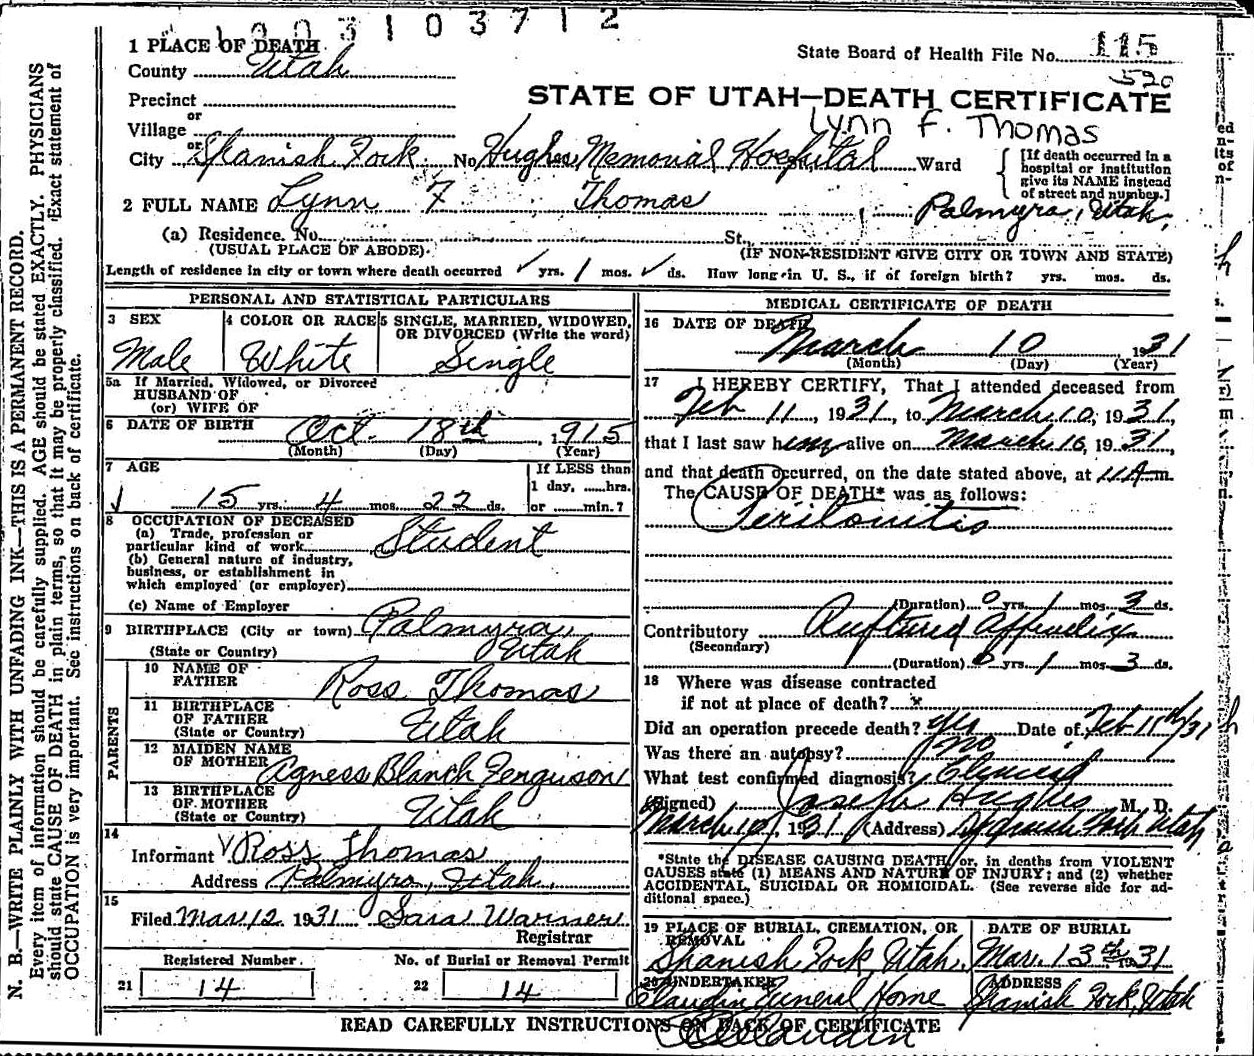 3 1 0 3 7 1 2
1 PLACE OF DEATH
County Utah
State Board of Health File No. 115
520
Precinct
STATE OF UTAH—DEATH CERTIFICATE
Lynn F. Thomas
or
Village
or
City Spanish Fork No. Hughes Memorial Hospital Ward
[If death occurred in a
hospital or institution
give its NAME instead
of street and number.]
2 FULL NAME Lynn F Thomas
Palmyra, Utah,
(a) Residence. No. St.,
(USUAL PLACE OF ABODE).
(IF NON-RESIDENT GIVE CITY OR TOWN AND STATE)
Length of residence in city or town where death occurred yrs. 1 mos. ds. How long in U. S., if of foreign birth? yrs. mos. ds.
PERSONAL AND STATISTICAL PARTICULARS
3 SEX
Male
4 COLOR OR RACE
White
5 SINGLE, MARRIED, WIDOWED,
OR DIVORCED (Write the word)
Single
5a If Married, Widowed, or Divorced
HUSBAND OF
(or) WIFE OF
6 DATE OF BIRTH Oct. 18th, 1915
(Month) (Day) (Year)
7 AGE
15 yrs. 4 mos. 22 ds.
If LESS than
1 day, ......hrs.
or .......min.?
8 OCCUPATION OF DECEASED
(a) Trade, profession or
particular kind of work Student
(b) General nature of industry,
business, or establishment in
which employed (or employer)
(c) Name of Employer
9 BIRTHPLACE (City or town) Palmyra,
(State or Country) Utah
PARENTS
10 NAME OF
FATHER Ross Thomas
11 BIRTHPLACE
OF FATHER
(State or Country) Utah
12 MAIDEN NAME
OF MOTHER Agness Blanch Ferguson
13 BIRTHPLACE
OF MOTHER
(State or Country) Utah
14
Informant Ross Thomas
Address Palmyra, Utah.
15
Filed Mar. 12. 1931 Sara Warner
Registrar
Registered Number.
21 14
No. of Burial or Removal Permit
22 14
MEDICAL CERTIFICATE OF DEATH
16 DATE OF DEATH
March 10 1931
(Month) (Day) (Year)
17 I HEREBY CERTIFY, That I attended deceased from
Feb 11, 1931, to March 10, 1931,
that I last saw him alive on March 10, 1931,
and that death occurred, on the date stated above, at 11 A m.
The CAUSE OF DEATH* was as follows:
Peritonitis
(Duration) 0 yrs. 1 mos. 3 ds.
Contributory Ruptured Appendix
(Secondary)
(Duration) 0 yrs. 1 mos. 3 ds.
18 Where was disease contracted
if not at place of death? x
Did an operation precede death? Yes Date of Feb 11th/31
Was there an autopsy? no
What test confirmed diagnosis? Clinical
(Signed) Joseph Hughes M. D.
March 10, 1931 (Address) Spanish Fork Utah
*State the DISEASE CAUSING DEATH, or, in deaths from VIOLENT
CAUSES state (1) MEANS AND NATURE OF INJURY; and (2) whether
ACCIDENTAL, SUICIDAL OR HOMICIDAL. (See reverse side for ad-
ditional space.)
19 PLACE OF BURIAL, CREMATION, OR
REMOVAL
Spanish Fork, Utah.
DATE OF BURIAL
Mar. 13th 1931
20 UNDERTAKER
Claudin Funeral Home
ADDRESS
Spanish Fork, Utah
READ CAREFULLY INSTRUCTIONS ON BACK OF CERTIFICATE
N. B.—WRITE PLAINLY WITH UNFADING INK—THIS IS A PERMANENT RECORD.
Every item of information should be carefully supplied. AGE should be stated EXACTLY. PHYSICIANS
should state CAUSE OF DEATH in plain terms, so that it may be properly classified. Exact statement of
OCCUPATION is very important. See instructions on back of certificate.